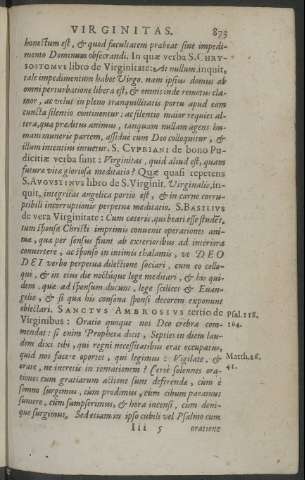 VIRGINITAS. 873
honestum est, & quod facultatem prabeat sine impedi-
mento Dominum obsecrandi. In quæ verba S. CHRY-
SOSTOMVS libro de Virginitate: At nullum, inquit,
tale impedimentum habet Virgo. nam ipsius domus ab
omni perturbatione libera est, & omnis inde remotus cla-
mor, ac velut in pleno tranquillitatis portu apud eam
cuncta silentio continentur: ac silentio maior requies al-
tera, qua præditus animus, tanquam nullam agens hu-
manimuneris partem, assidue cum Deo colloquitur, &
illum intentius intuetur. S. CYPRIANI de bono Pu-
dicitiæ verba sunt: Virginitas, quid aliud est, quam
futura vita gloriosa meditatio? Quæ quasi repetens
S. AVGVSTINVS libro de S. Virginit. Virginalis, in-
quit, integritas angelica portio est, & in carne corru-
ptibili incorruptionis perpetua meditatio. S. BASILIVS
de vera Virginitate: Cum ceteris, quis beati esse student,
tum sponsa Christi imprimis convenit operationes ani-
ma, qua per sensus fiunt ab exterioribus ad interiora
convertere, ac sponso in intimis thalamis, ut DEO
DEI verbo perpetua dilectione sociari, cum eo collo-
qui, & in eius die noctuque lege meditari, & his qui-
dem qua ad sponsum ducunt, lege scilicet & Euan-
gelio, & si qua his consona sponsi decorem exponunt
oblectari. SANCTVS AMBROSIVS tertio de
Psal. 118.
Virginibus: Oratio quoque nos Deo crebra com-
164.
mendat: si enim Propheta dicit, Septies in diem lau-
dem dixi tibi, qui regni necessitatibus erat occupatus,
quid nos facere oportet, qui legimus: Vigilate, &
Matth. 26.
orate, ne intretis in tentationem? Certè solennes ora-
41.
tiones cum gratiarum actione sunt deferenda, cum è
somno surgimus, cum prodimus, cum cibum paramus
sumere, cum sumpserimus, & hora incensi, cum deni-
que surgimus. Sed etiam in ipso cubili vel Psalmo cum
Iii 5 oratione